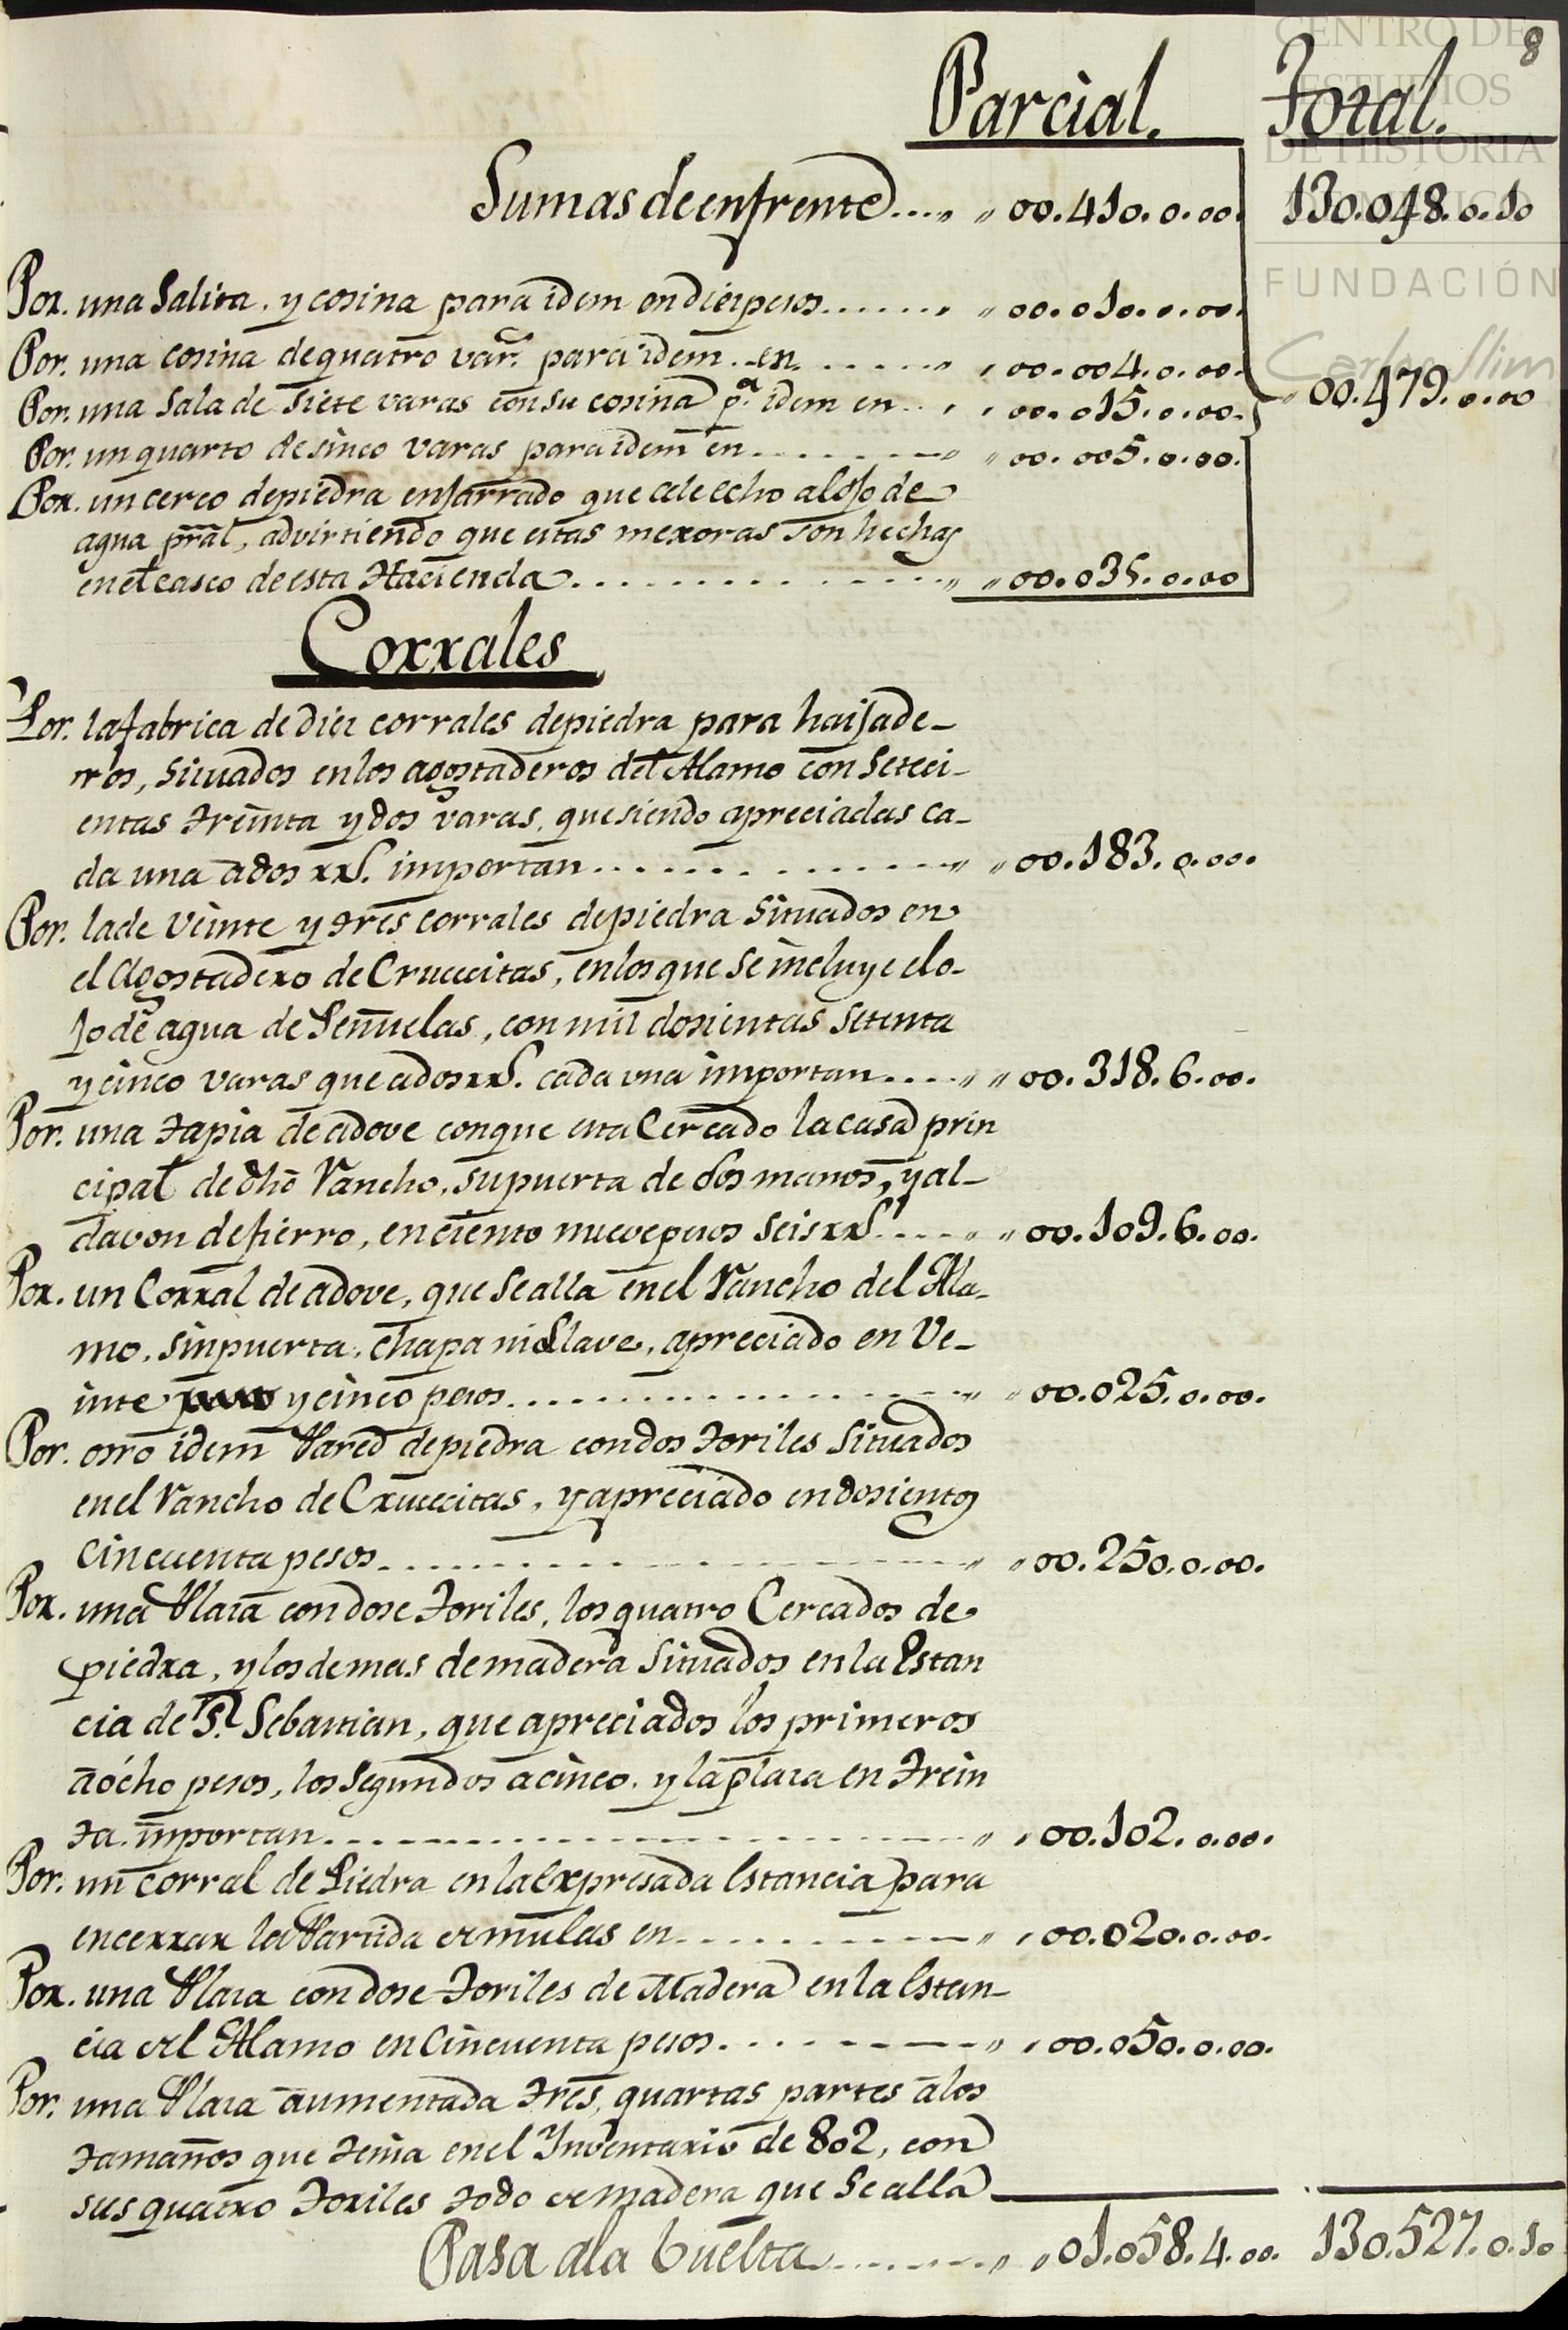 8
Parcial. Total.
CENTRO DE
ESTUDIOS
DE HISTORIA
DE MÉXICO
FUNDACIÓN
Carlos Slim
Sumas de enfrente.... 00.410.0.00. 130.048.0.10
Por. una Salita. y cosina para idem en diez pesos....... 00.010.0.00.
Por. una cosina de quatro var.s para idem. en....... 00.004.0.00.
Por. una Sala de Siete varas con su cosina p.a idem en.. 00.015.0.00. 00.479.0.00
Por. un quarto de sinco varas para idem en....... 00.005.0.00.
Por. un cerco de piedra enjarrado que cele echo al ojo de
agua pral, advirtiendo que estas mexoras son hechas
en el casco de esta Hacienda............ 00.035.0.00
Corrales
Por. la fabrica de diez corrales de piedra para haijade-
ros, Situados en los agostaderos del Alamo con Seteci-
entas treinta y dos varas. que siendo apreciadas ca-
da una a dos rrs. importan............ 00.183.0.00.
Por. la de Veinte y tres corrales de piedra Situados en
el Agostadero de Crucecitas, en los que se incluye el o-
jo de agua de Señuelas, con mil dosientas Setenta
y cinco varas que a dos rrs. cada una importan.... 00.318.6.00.
Por. una tapia de adove con que esta Cercado la casa prin
cipal de dho Rancho, su puerta de dos manos, y al-
davon de fierro, en ciento nueve pesos seis rrs.... 00.109.6.00.
Por. un Corral de adove, que Se alla en el Rancho del Ala-
mo, sin puerta, chapa ni llave, apreciado en Ve-
inte y cinco pesos............ 00.025.0.00.
Por. otro idem Pared de piedra con dos toriles Situados
en el Rancho de Crucecitas, y apreciado en dosientos
Cincuenta pesos............ 00.250.0.00.
Por. una Plaza con dose toriles, los quatro Cercados de
piedra, y los demas de madera Situados en la Estan
cia de S.n Sebastian, que apreciados los primeros
a ocho pesos, los Segundos a cinco. y la plaza en trein
ta. importan............ 00.102.0.00.
Por. un corral de Piedra en la Expresada Estancia para
encerrar la Partida de mulas en............ 00.020.0.00.
Por. una Plaza con dose toriles de Madera en la Estan-
cia del Alamo en Cincuenta pesos............ 00.050.0.00.
Por. una Plaza aumentada tres, quartas partes a los
tamaños que tenia en el Inventario de 802, con
sus quatro toriles todo de madera que Se alla
Pasa ala buelta........ 01.058.4.00. 130.527.0.10